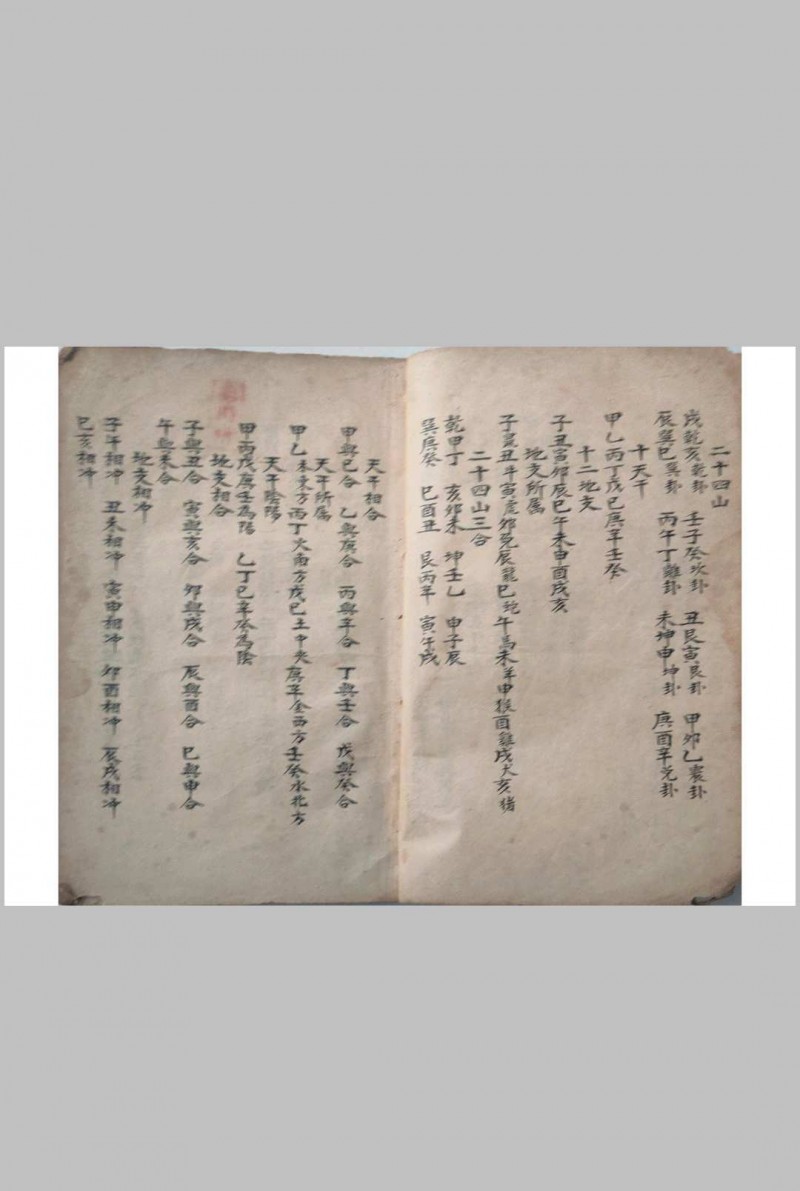 二十四山
戌乾亥乾卦　壬子癸坎卦　丑艮寅艮卦　甲卯乙震卦
辰巽巳巽卦　丙午丁離卦　未坤申坤卦　庚酉辛兌卦
十天干
甲乙丙丁戊己庚辛壬癸
十二地支
子丑寅卯辰巳午未申酉戌亥
地支所属
子鼠丑牛寅虎卯兔辰龍巳蛇午馬未羊申猴酉雞戌犬亥猪
二十四山三合
乾甲丁　亥卯未　坤壬乙　申子辰
巽庚癸　巳酉丑　艮丙辛　寅午戌
天干相合
甲與己合　乙與庚合　丙與辛合　丁與壬合　戊與癸合
天干所属
甲乙木東方丙丁火南方戊己土中央庚辛金西方壬癸水北方
天干陰陽
甲丙戊庚壬為陽　乙丁己辛癸為陰
地支相合
子與丑合　寅與亥合　卯與戌合　辰與酉合　巳與申合
午與未合
地支相冲
子午相冲　丑未相冲　寅申相冲　卯酉相冲　辰戌相冲
巳亥相冲